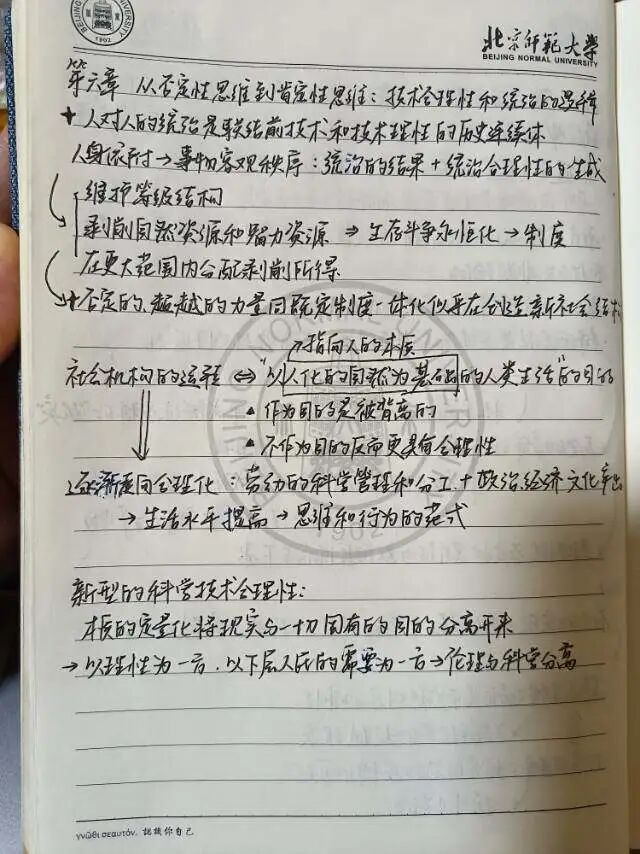 北京师范大学
BEIJING NORMAL UNIVERSITY
第六章 从否定性思维到肯定性思维：技术合理性和统治的逻辑
+ 人对人的统治是联结前技术和技术理性的历史连续体
人身依附→事物客观秩序：统治的结果+统治合理性的生成
维护等级结构
剥削自然资源和智力资源 ⇒ 生存斗争永恒化→制度
在更大范围内分配剥削所得
+ 否定的、超越的力量同既定制度一体化似乎在创造新社会结构
↗指向人的本质
社会机构的运转 ⇔ "以人化的自然为基础的人类生活"的目的
▲ 作为目的是被背离的
▲ 不作为目的反而更具有合理性
逐渐趋向合理化：劳动的科学管理和分工+政治、经济、文化产出
→生活水平提高→思维和行为的范式
新型的科学技术合理性：
本质的定量化将现实与一切固有的目的分离开来
→以理性为一方，以下层人民的需要为一方→伦理与科学分离
γνῶθι σεαυτόν. 認識你自己